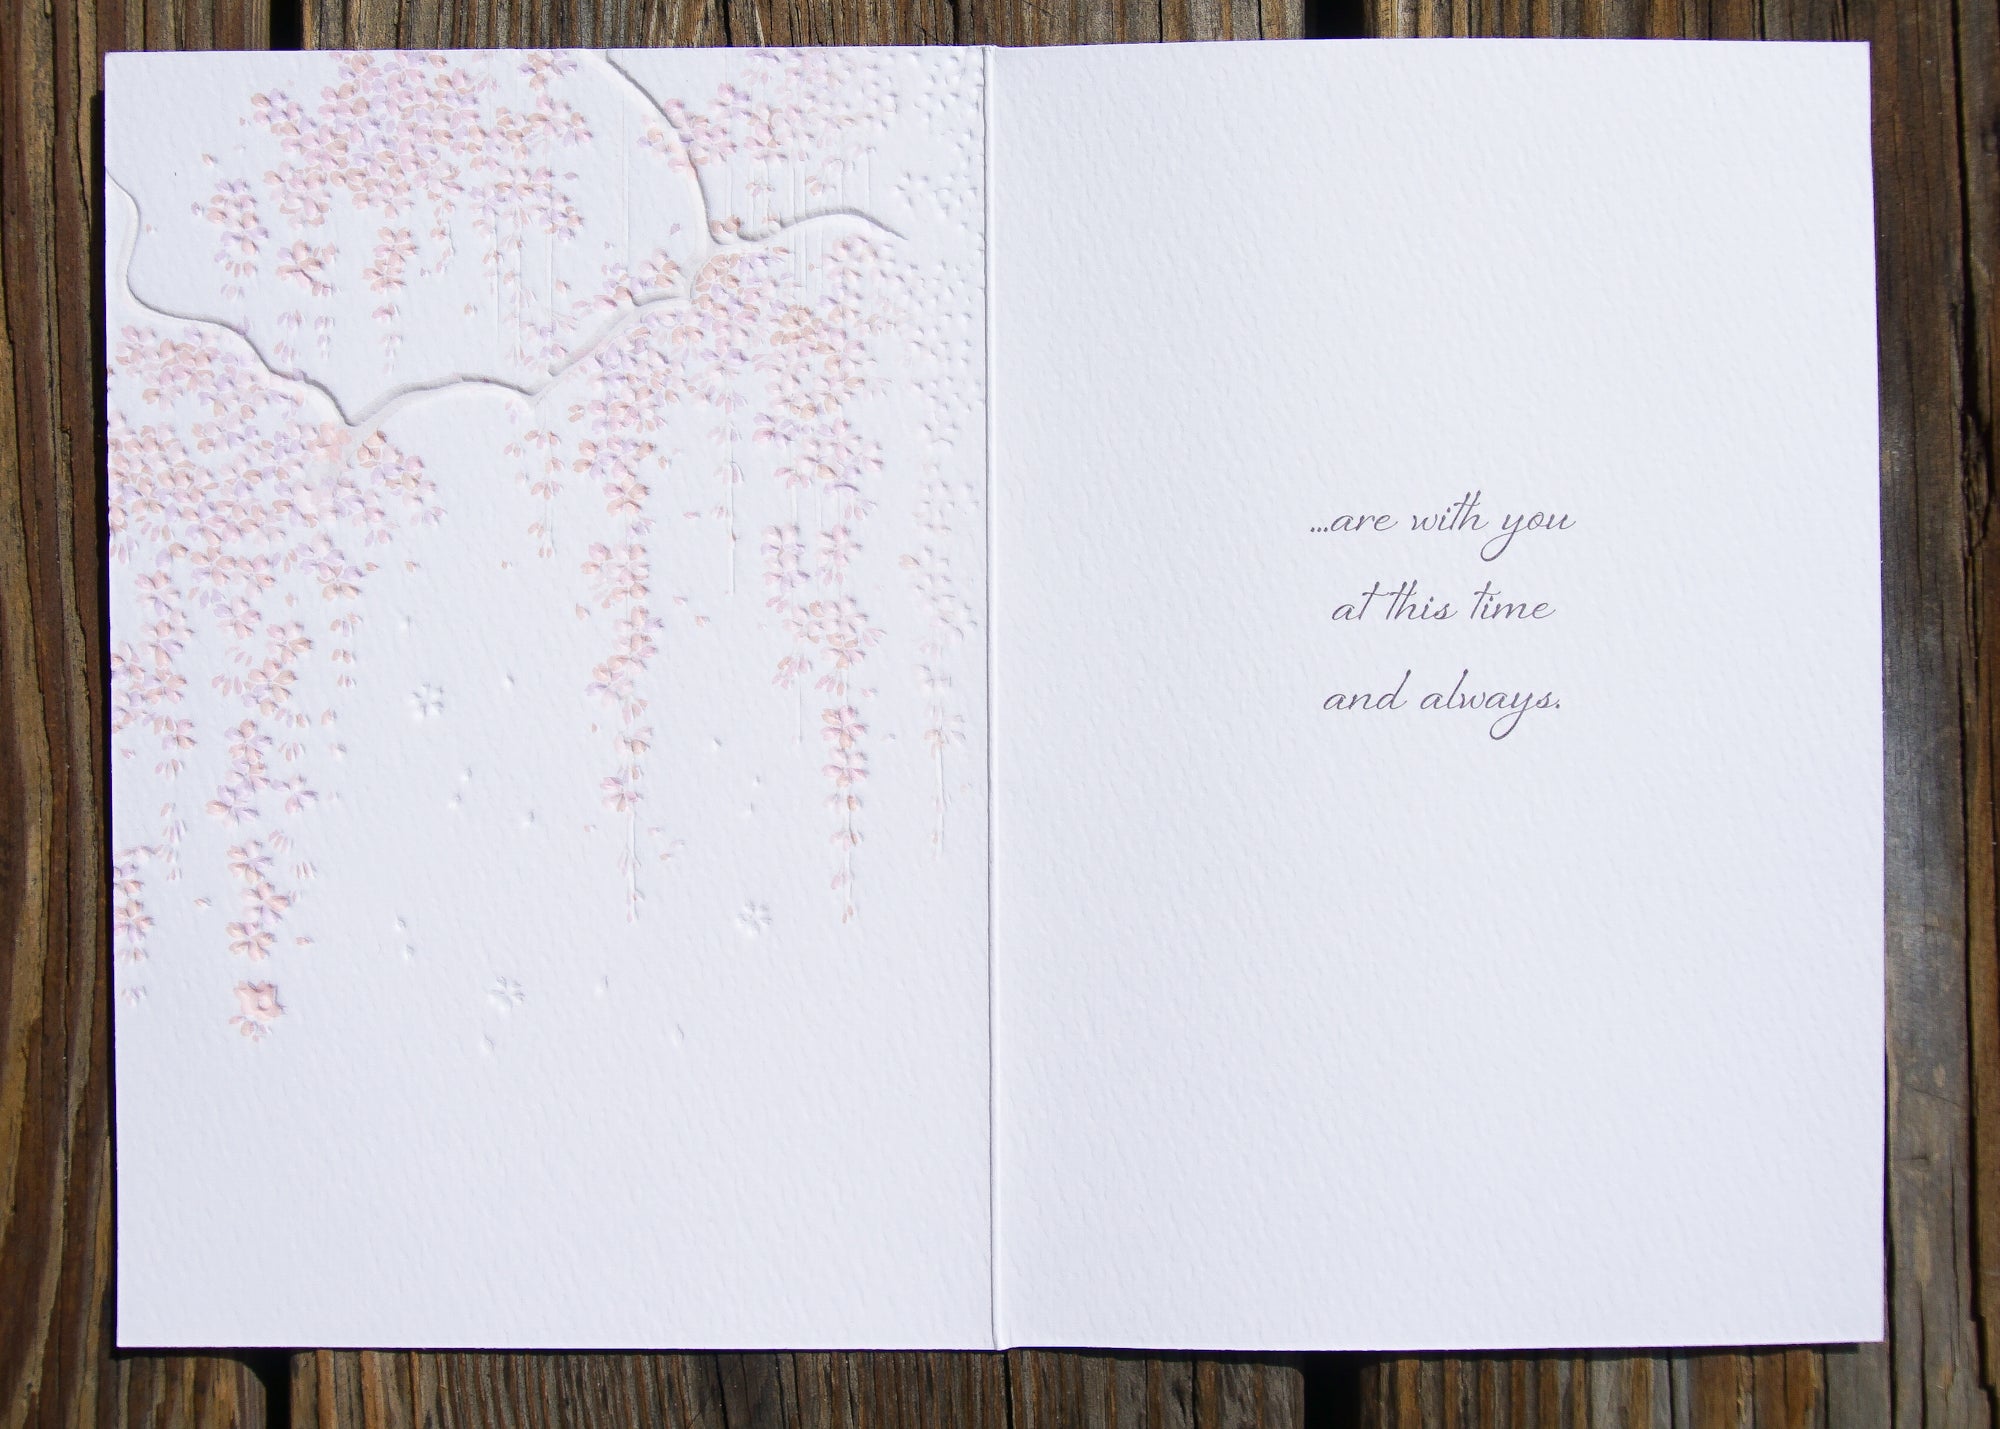 ...are with you
at this time
and always.